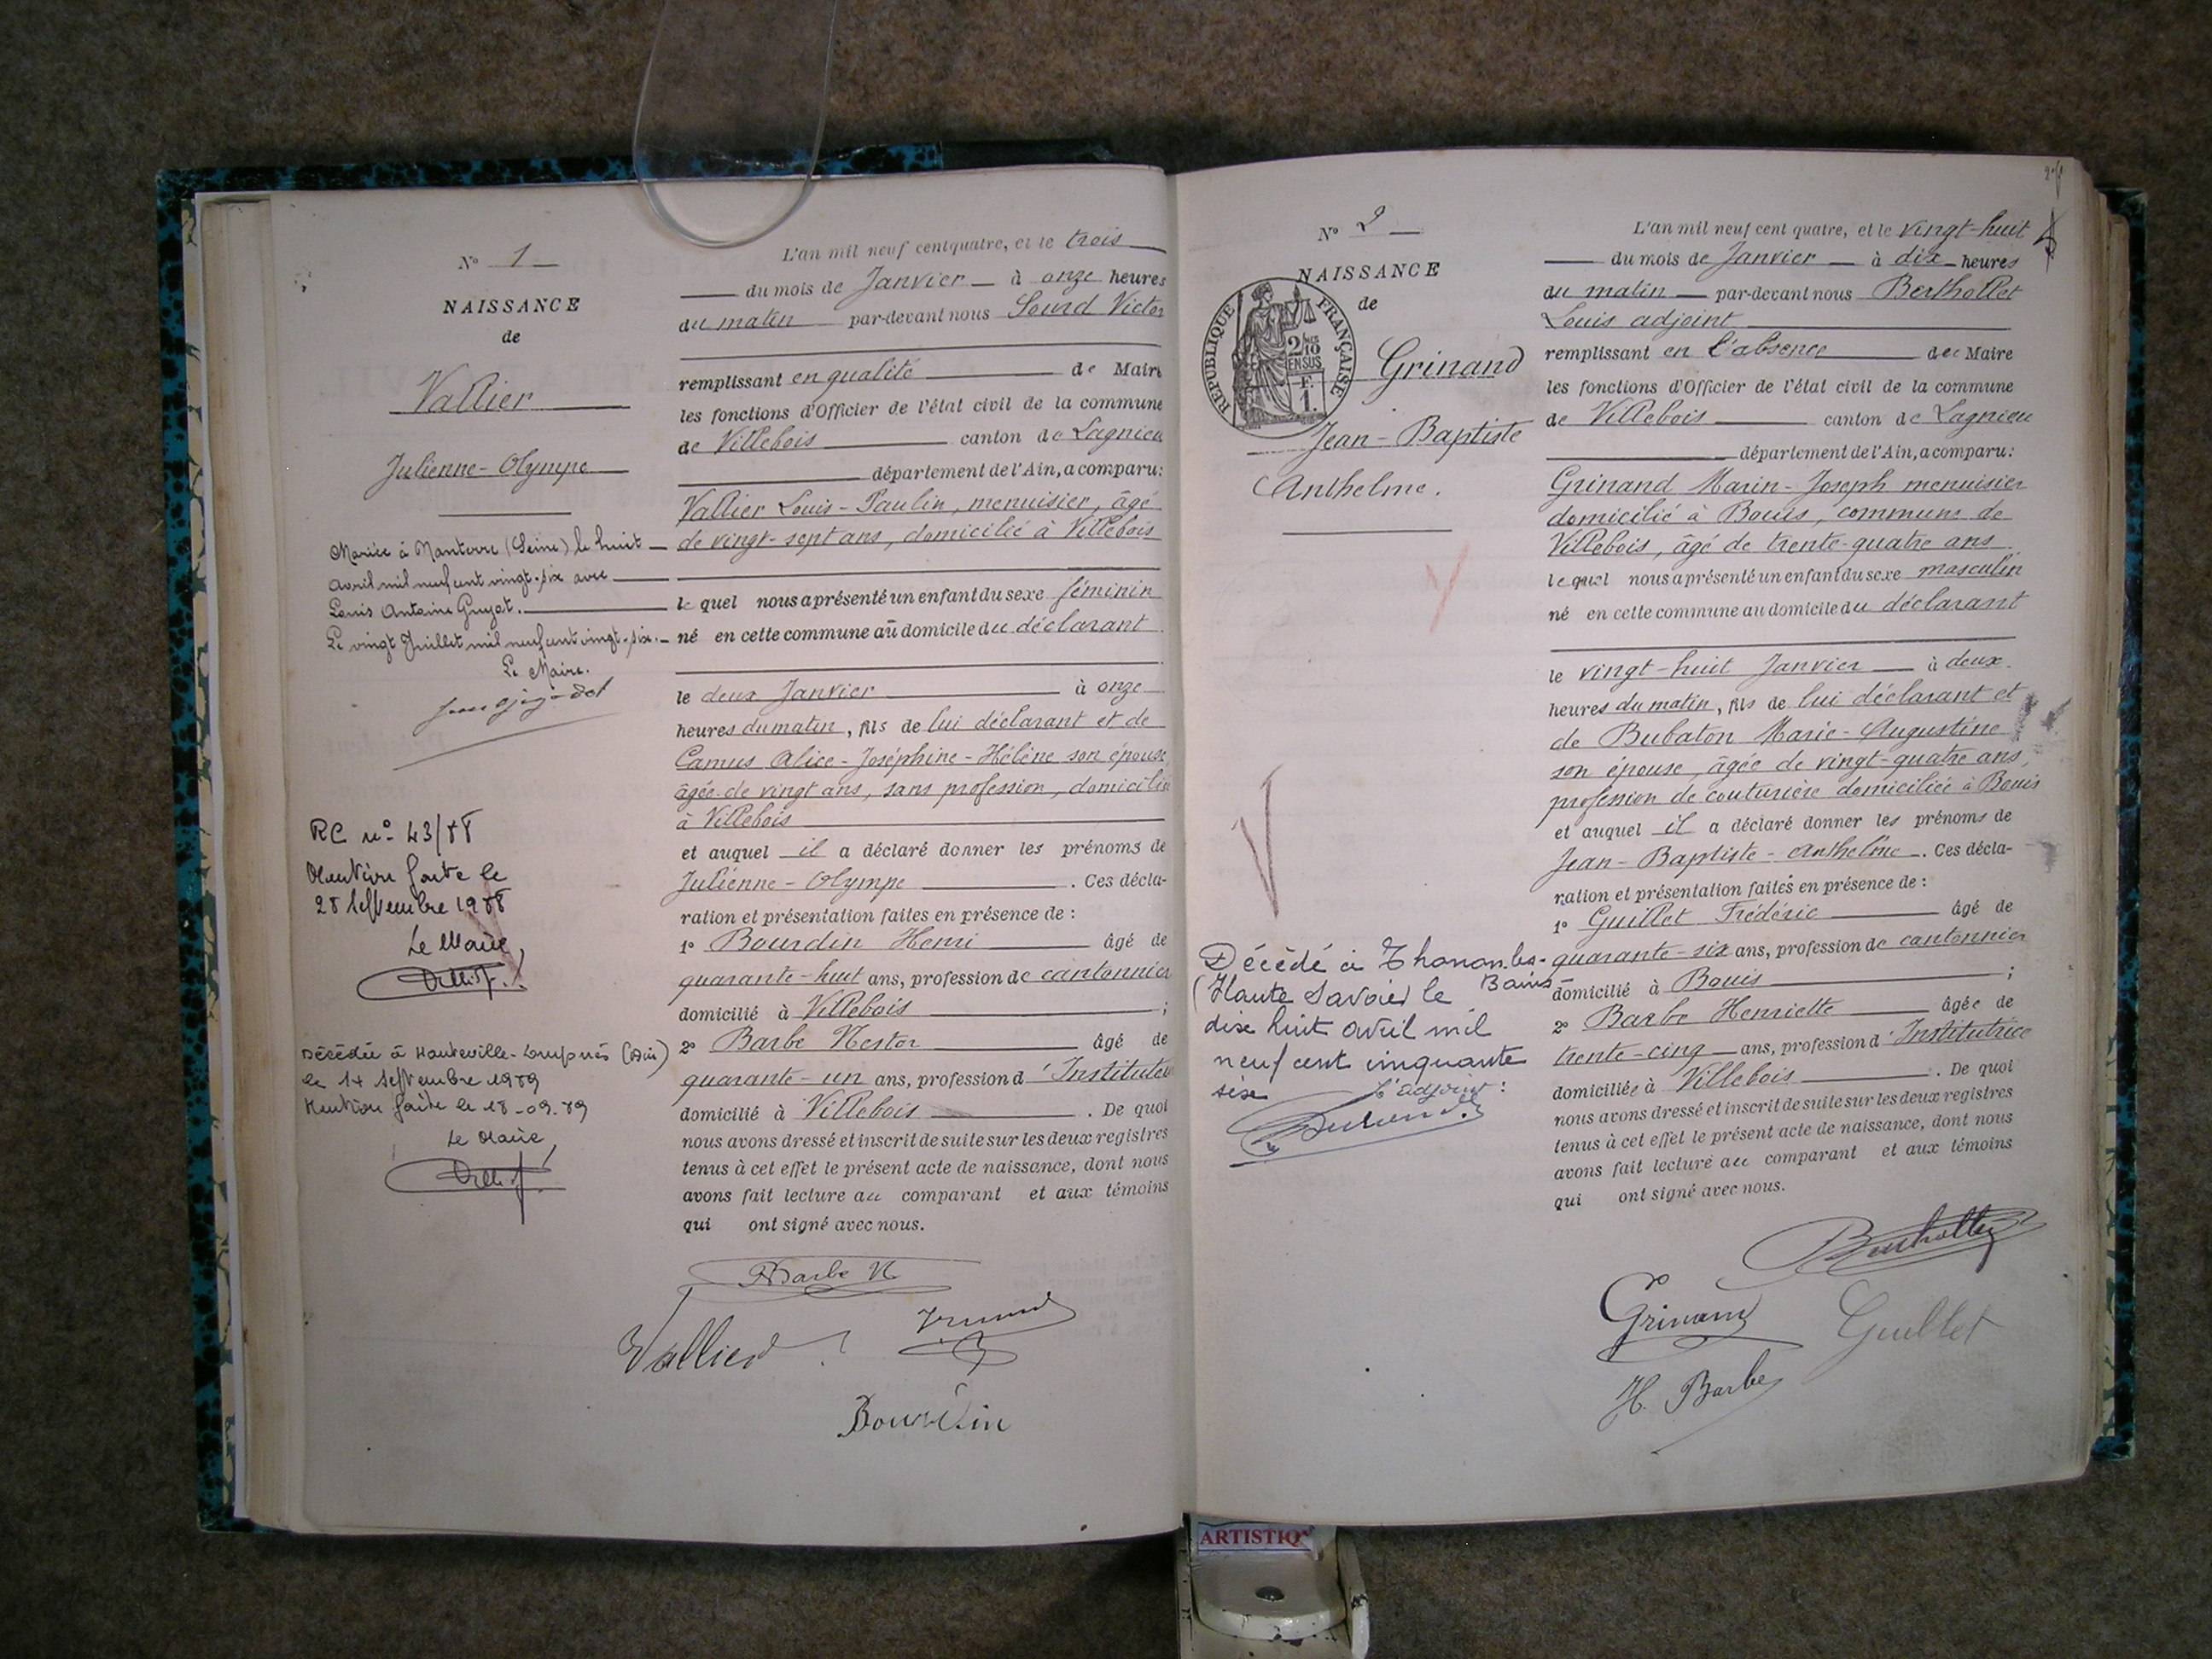 N° 1
NAISSANCE
de
Vallier
Julienne-Olympe
Mariée à Nanterre (Seine) le huit
avril mil neuf cent vingt-six avec
Louis Antoine Guyot.
Le vingt Juillet mil neuf cent vingt-six.
Le Maire.
RC n° 43/88
Mention faite le
28 Septembre 1988
Le Maire,
Décédée à Hauteville-Lompnés (Ain)
le 14 Septembre 1989
Mention faite le 18-09-89
Le Maire,
L'an mil neuf cent quatre, et le trois
du mois de Janvier à onze heures
du matin par-devant nous Sourd Victor
remplissant en qualité de Maire
les fonctions d'Officier de l'état civil de la commune
de Villebois canton de Lagnieu
département de l'Ain, a comparu:
Vallier Louis-Paulin, menuisier, âgé
de vingt-sept ans, domicilié à Villebois
lequel nous a présenté un enfant du sexe féminin
né en cette commune au domicile du déclarant
le deux Janvier à onze
heures du matin, fils de lui déclarant et de
Camus Alice-Joséphine-Hélène son épouse
âgée de vingt ans, sans profession, domiciliée
à Villebois
et auquel il a déclaré donner les prénoms de
Julienne-Olympe. Ces décla-
ration et présentation faites en présence de :
1° Bourdin Henri âgé de
quarante-huit ans, profession de cantonnier
domicilié à Villebois ;
2° Barbe Nestor âgé de
quarante-un ans, profession d'Instituteur
domicilié à Villebois. De quoi
nous avons dressé et inscrit de suite sur les deux registres
tenus à cet effet le présent acte de naissance, dont nous
avons fait lecture au comparant et aux témoins
qui ont signé avec nous.
Barbe N
Vallier
Bourdin
N° 2
NAISSANCE
de
REPUBLIQUE FRANÇAISE
2/10
EN SUS
F.
1.
Grinand
Jean-Baptiste
Anthelme.
Décédé à Thonon-les-
Bains
(Haute Savoie) le
dix huit avril mil
neuf cent cinquante
six
L'adjoint :
L'an mil neuf cent quatre, et le vingt-huit
du mois de Janvier à dix heures
du matin par-devant nous Berthollet
Louis adjoint
remplissant en l'absence du Maire
les fonctions d'Officier de l'état civil de la commune
de Villebois canton de Lagnieu
département de l'Ain, a comparu:
Grinand Marin-Joseph menuisier
domicilié à Bouis, commune de
Villebois, âgé de trente-quatre ans
lequel nous a présenté un enfant du sexe masculin
né en cette commune au domicile du déclarant
le vingt-huit Janvier à deux
heures du matin, fils de lui déclarant et
de Bubaton Marie-Augustine
son épouse, âgée de vingt-quatre ans,
profession de couturière domiciliée à Bouis
et auquel il a déclaré donner les prénoms de
Jean-Baptiste-Anthelme. Ces décla-
ration et présentation faites en présence de :
1° Guillet Frédéric âgé de
quarante-six ans, profession de cantonnier
domicilié à Bouis ;
2° Barbe Henriette âgée de
trente-cinq ans, profession d'Institutrice
domiciliés à Villebois. De quoi
nous avons dressé et inscrit de suite sur les deux registres
tenus à cet effet le présent acte de naissance, dont nous
avons fait lecture au comparant et aux témoins
qui ont signé avec nous.
Berthollet
Grinand
Guillet
H. Barbe
ARTISTIQ